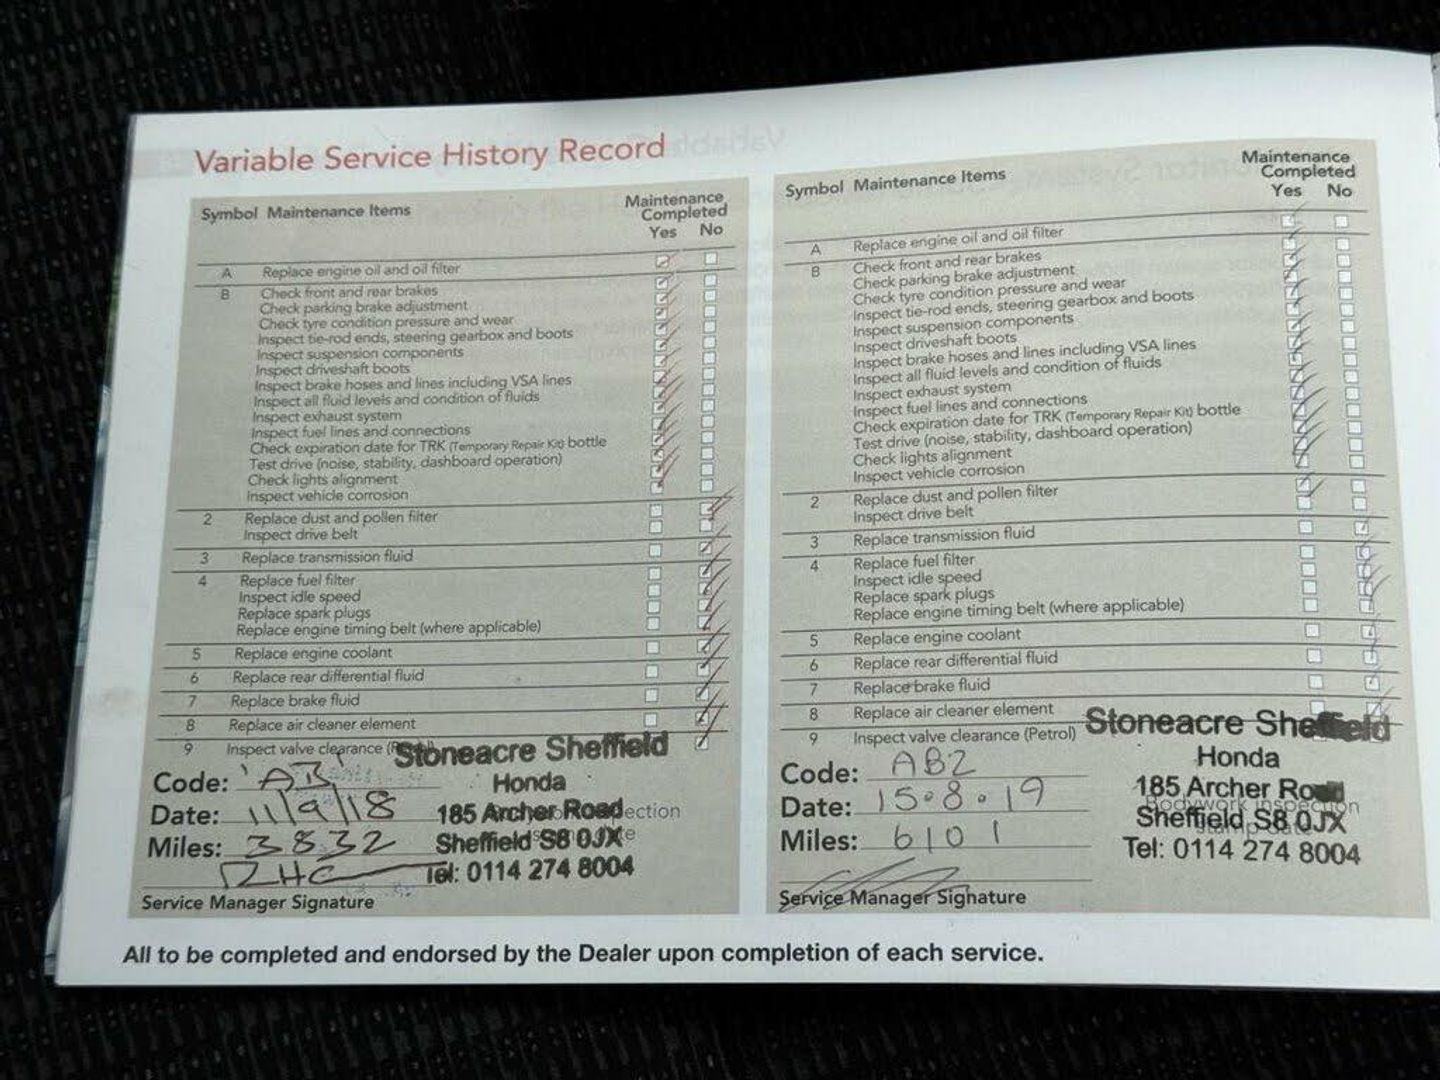 Variable Service History Record
Symbol Maintenance Items
Maintenance
Completed
Yes No
A Replace engine oil and oil filter
B Check front and rear brakes
Check parking brake adjustment
Check tyre condition pressure and wear
Inspect tie-rod ends, steering gearbox and boots
Inspect suspension components
Inspect driveshaft boots
Inspect brake hoses and lines including VSA lines
Inspect all fluid levels and condition of fluids
Inspect exhaust system
Inspect fuel lines and connections
Check expiration date for TRK (Temporary Repair Kit) bottle
Test drive (noise, stability, dashboard operation)
Check lights alignment
Inspect vehicle corrosion
2 Replace dust and pollen filter
Inspect drive belt
3 Replace transmission fluid
4 Replace fuel filter
Inspect idle speed
Replace spark plugs
Replace engine timing belt (where applicable)
5 Replace engine coolant
6 Replace rear differential fluid
7 Replace brake fluid
8 Replace air cleaner element
9 Inspect valve clearance
Stoneacre Sheffield
Honda
185 Archer Road
Sheffield S8 0JX
Tel: 0114 274 8004
Code: 'AB'
Date: 11/9/18
Miles: 3832
Service Manager Signature
Symbol Maintenance Items
Maintenance
Completed
Yes No
A Replace engine oil and oil filter
B Check front and rear brakes
Check parking brake adjustment
Check tyre condition pressure and wear
Inspect tie-rod ends, steering gearbox and boots
Inspect suspension components
Inspect driveshaft boots
Inspect brake hoses and lines including VSA lines
Inspect all fluid levels and condition of fluids
Inspect exhaust system
Inspect fuel lines and connections
Check expiration date for TRK (Temporary Repair Kit) bottle
Test drive (noise, stability, dashboard operation)
Check lights alignment
Inspect vehicle corrosion
2 Replace dust and pollen filter
Inspect drive belt
3 Replace transmission fluid
4 Replace fuel filter
Inspect idle speed
Replace spark plugs
Replace engine timing belt (where applicable)
5 Replace engine coolant
6 Replace rear differential fluid
7 Replace brake fluid
8 Replace air cleaner element
9 Inspect valve clearance (Petrol)
Stoneacre Sheffield
Honda
185 Archer Road
Bodywork inspection
Sheffield S8 0JX
stamp date
Tel: 0114 274 8004
Code: AB2
Date: 15.8.19
Miles: 6101
Service Manager Signature
All to be completed and endorsed by the Dealer upon completion of each service.